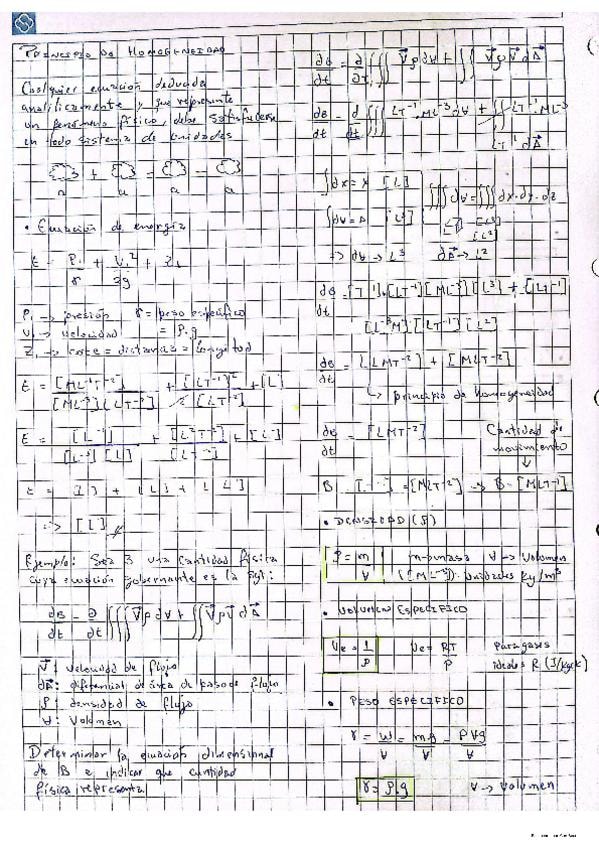 PRINCIPIO DE HOMOGENEIDAD
Cualquier ecuación deducida
analíticamente y que represente
un fenómeno físico, debe satisfacerse
en todo sistema de unidades
+ = -
• Ecuación de energía
E = P₁/γ + V₁²/2g + Z₁
P₁ → presión γ = peso específico
V₁ → velocidad = ρ.g
Z₁ → cota = distancia = longitud
E = [ML⁻¹T⁻²]/[ML⁻³](LT⁻²) + [LT⁻¹]²/2[LT⁻²] + [L]
E = [L⁻¹]/[L⁻³][L] + [L²T⁻²]/[LT⁻²] + [L]
E = [L] + [L] + [L]
=> [L]
Ejemplo: Sea B una cantidad física
cuya ecuación gobernante es la sgt:
dB/dt = ∂/∂t ∭ V⃗ρdV + ∬ V⃗ρV⃗ dA⃗
V⃗: velocidad de flujo
dA⃗: diferencial de área de paso de flujo
ρ: densidad de flujo
V: Volumen
Determinar la ecuación dimensional
de B e indicar que cantidad
física representa
dB/dt = ∂/∂t ∭ V⃗ρdV + ∬ V⃗ρV⃗ dA⃗
dB/dt = ∂/∂t ∭ LT⁻¹.ML⁻³dV + ∬ LT⁻¹.ML⁻³
LT⁻¹dA⃗
∫dx = x [L] ∭dV = ∭dx.dy.dz
=> dV → L³ dA⃗ → L²
dB/dt = [T⁻¹][LT⁻¹][ML⁻³][L³] + [LT⁻¹]
[L⁻³M][LT⁻¹][L²]
dB/dt = [LMT⁻²] + [MLT⁻²]
↳ principio de homogeneidad
dB/dt = [LMT⁻²] Cantidad de
movimiento
B = [MLT⁻²] → B = [MLT⁻¹]
• DENSIDAD (ρ)
ρ = m/V m → masa V → Volumen
([ML⁻³]) unidades kg/m³
• VOLUMEN ESPECÍFICO
Ve = 1/ρ Ve = RT/P Para gases
ideales R (J/kgK)
• PESO ESPECÍFICO
γ = w/V = mg/V = ρVg/V
γ = ρ.g V → Volumen